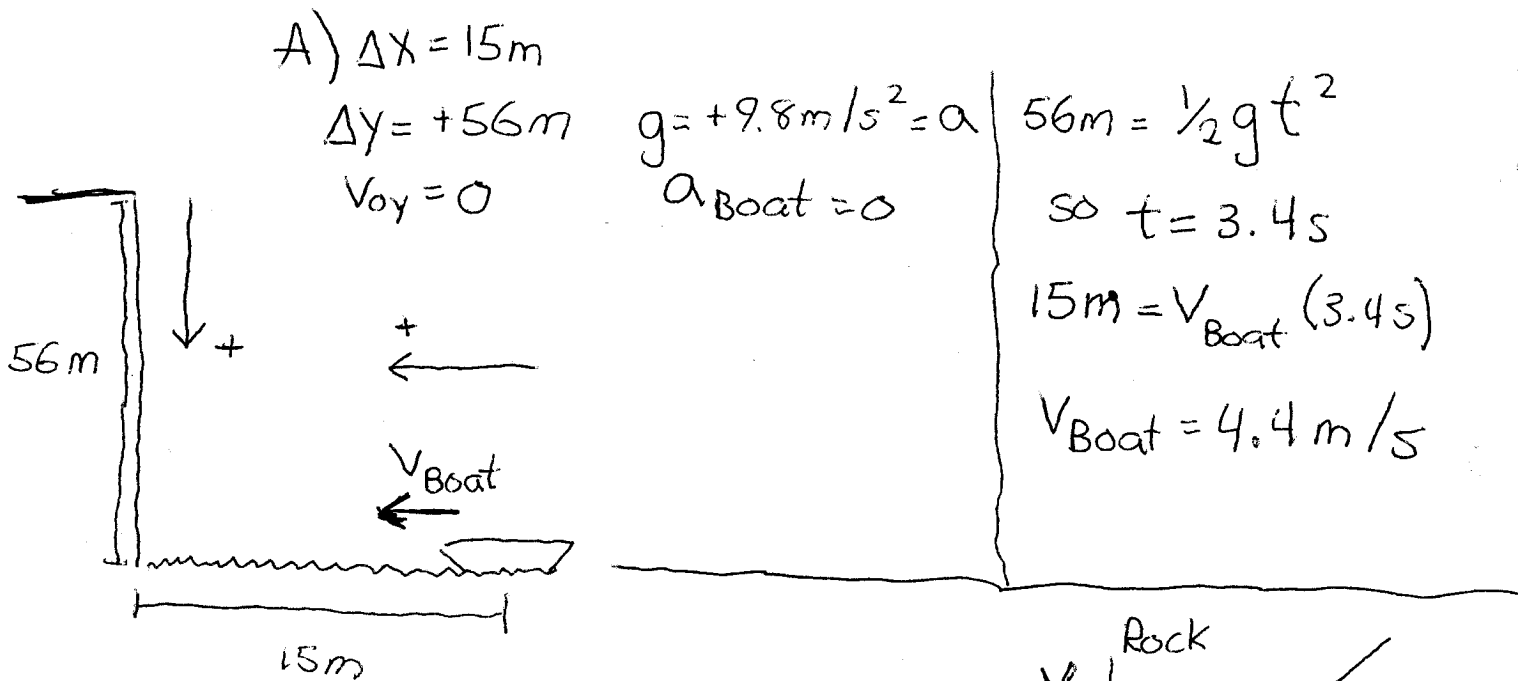 A) ΔX = 15m
ΔY = +56m
V₀y = 0
g = +9.8m/s² = a
a Boat = 0
56m = ½gt²
so t = 3.4s
15m = V Boat (3.4s)
V Boat = 4.4 m/s
56m
+
+
V Boat
15m
Rock